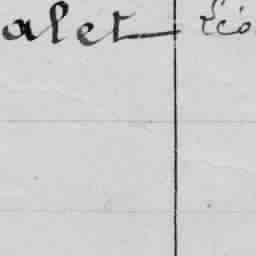 alet Éco